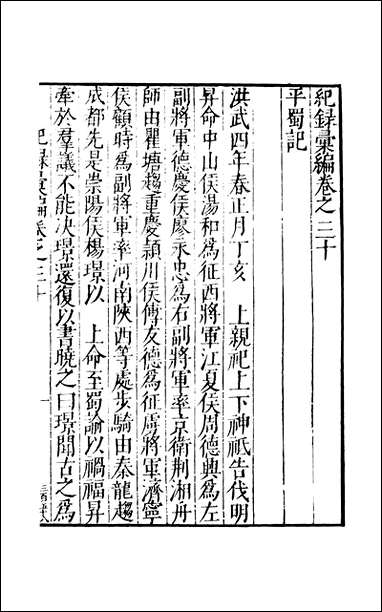 紀録彙編卷之三十
平蜀記
洪武四年春正月丁亥　上親祀上下神祇告伐明
昇命中山侯湯和為征西將軍江夏侯周德興為左
副將軍德慶侯廖永忠為右副將軍率京衛荆湘舟
師由瞿塘趨重慶頴川侯傅友德為征虜將軍濟寧
侯顧時為副將軍率河南陝西等處步騎由秦隴趨
成都先是崇陽侯楊璟以　上命至蜀諭以禍福昇
牽於羣議不能決璟還復以書曉之曰璟聞古之為
紀録彙編卷之三十
一